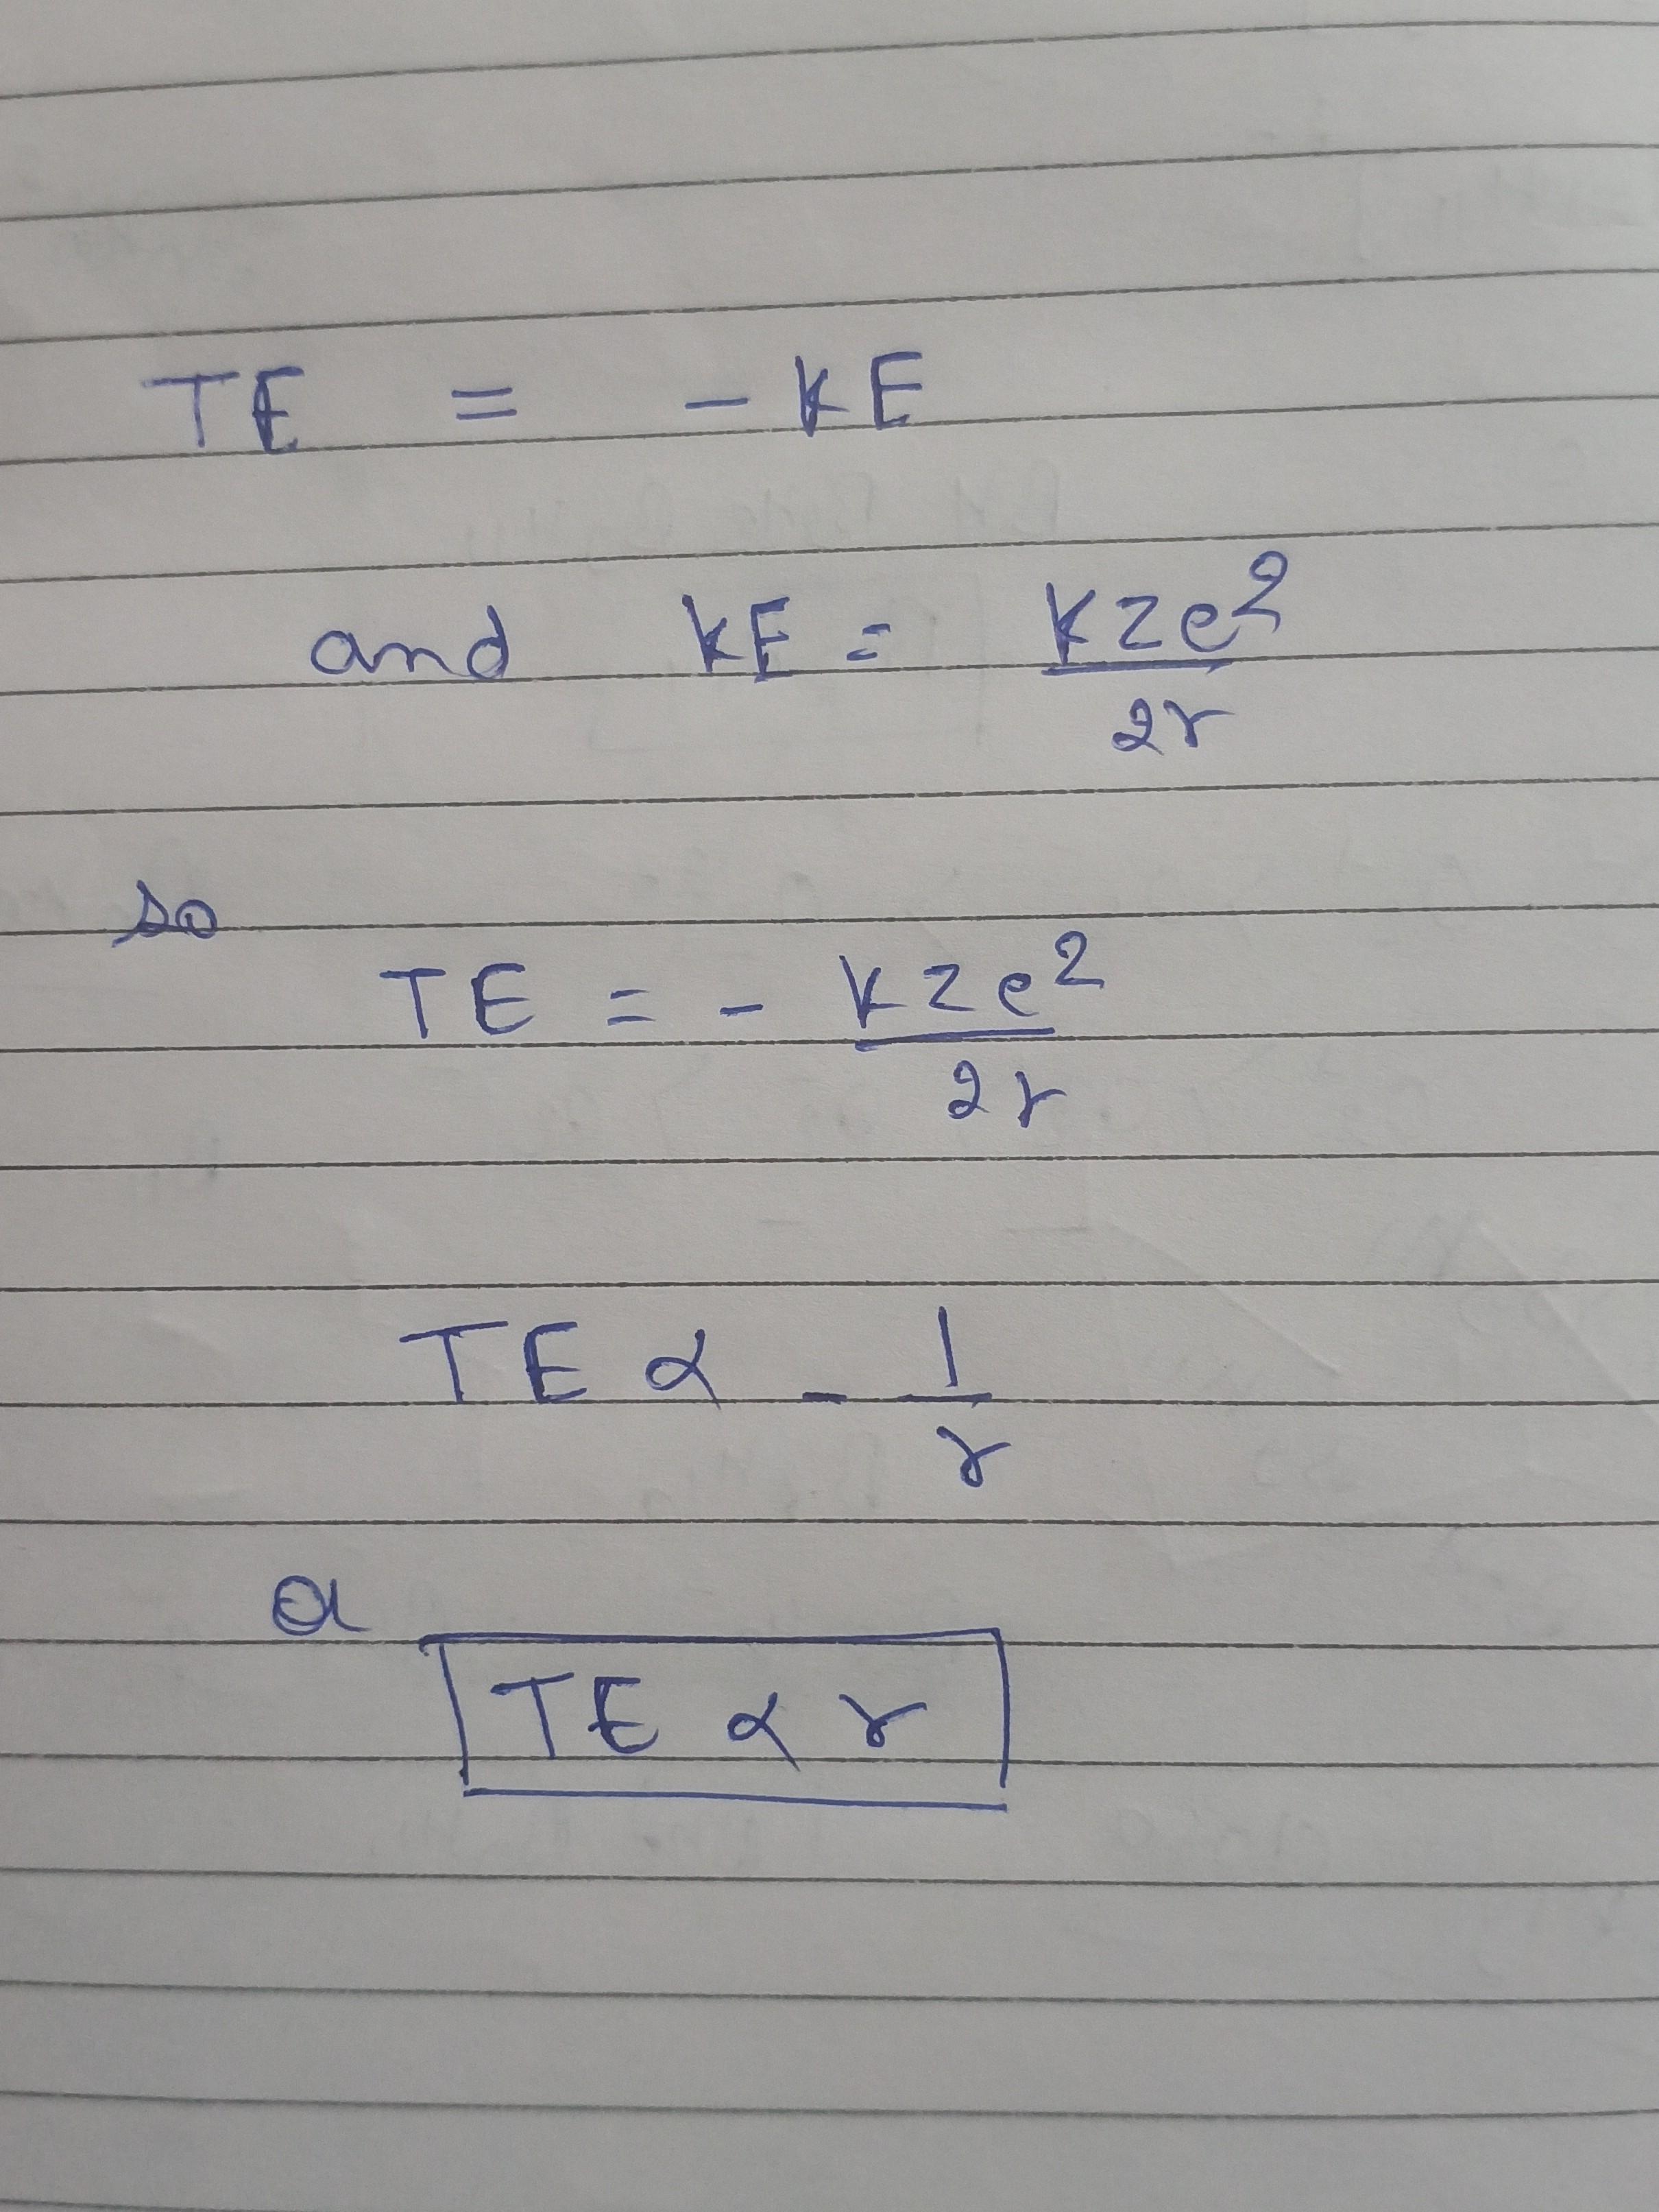 TE = - KE
and KE = KZe²/2r
so
TE = - KZe²/2r
TE ∝ - 1/r
TE ∝ r